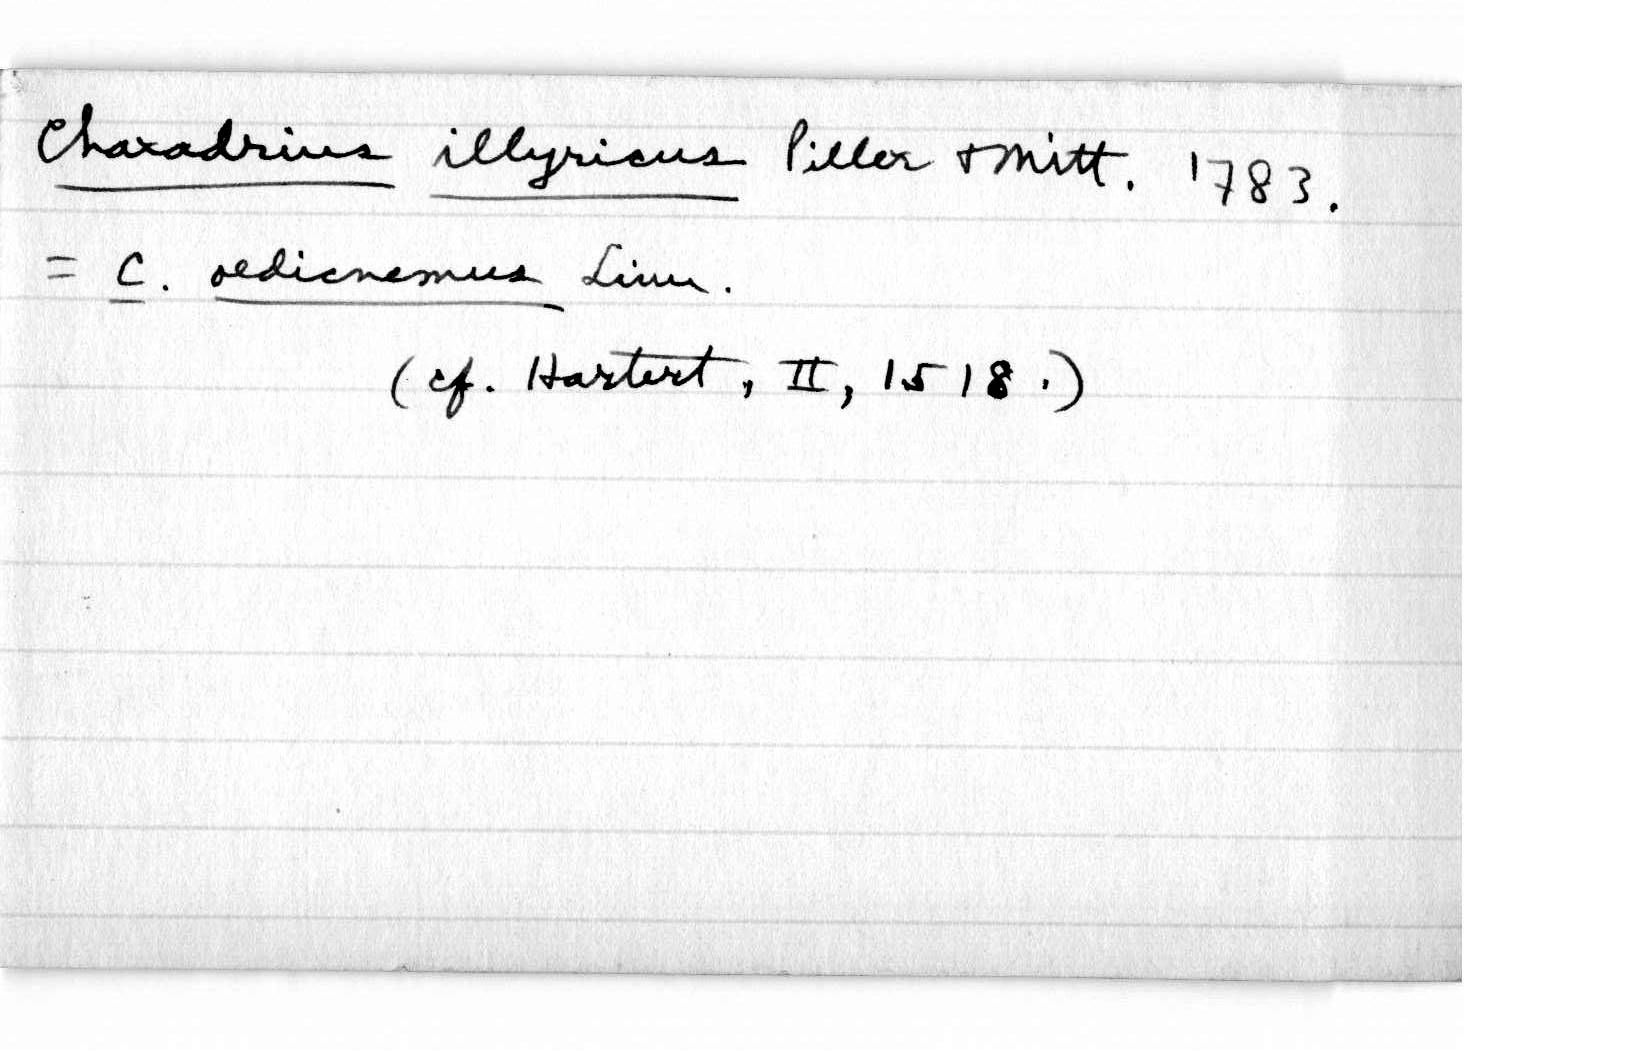 Charadrius illyricus Piller & Mitt. 1783.
= C. oedicnemus Linn.
(cf. Hartert, II, 1518.)